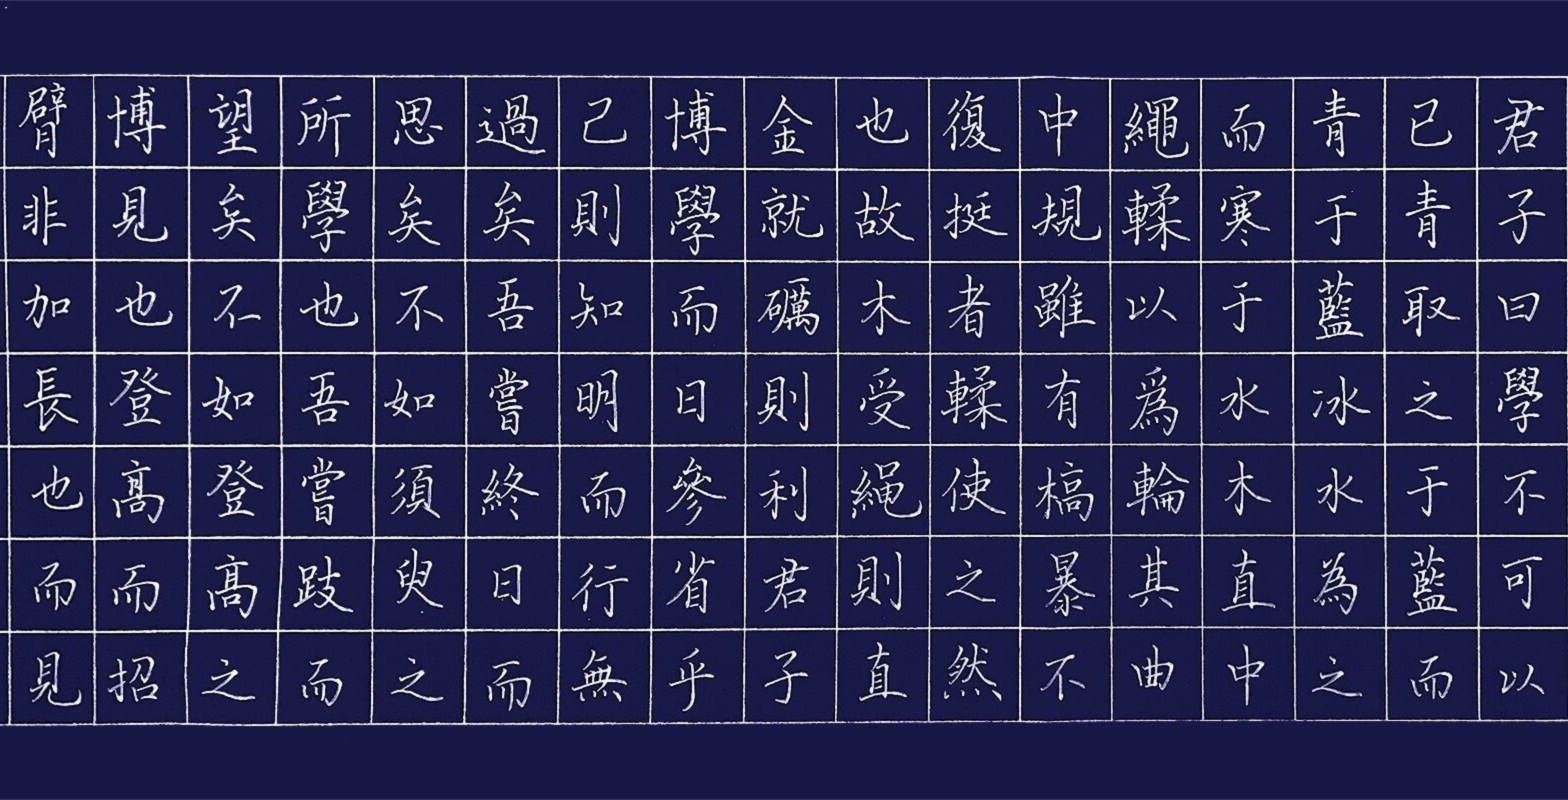 君子曰學不可以
已青取之于藍而
青于藍冰水為之
而寒于水木直中
繩輮以爲輪其曲
中規雖有槁暴不
復挺者輮使之然
也故木受繩則直
金就礪則利君子
博學而日參省乎
己則知明而行無
過矣吾嘗終日而
思矣不如須臾之
所學也吾嘗跂而
望矣不如登髙之
博見也登髙而招
臂非加長也而見